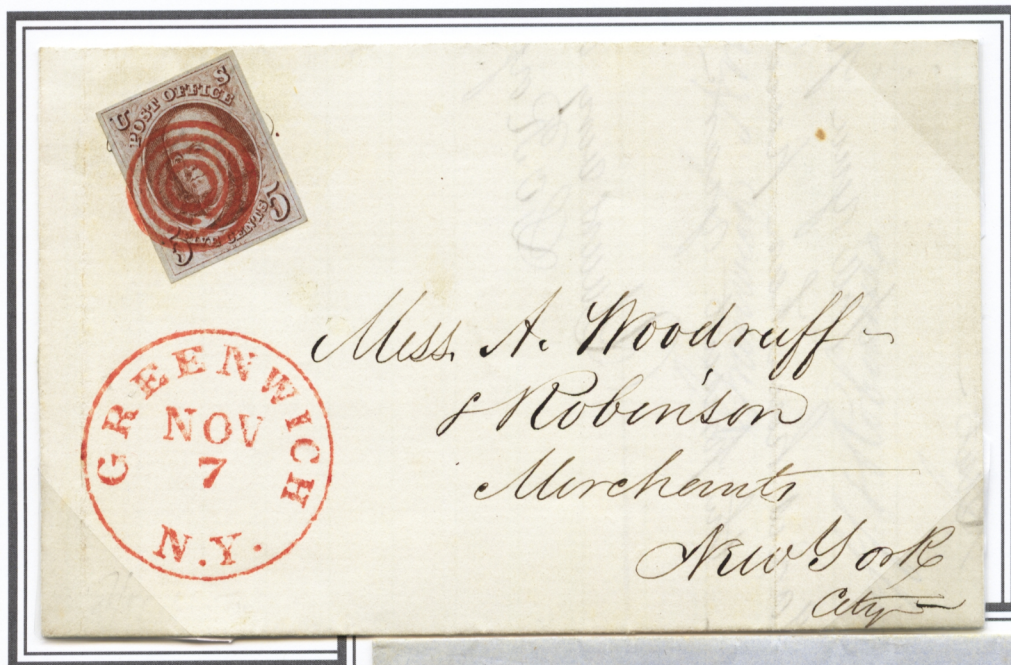 U S
POST OFFICE
FIVE CENTS
5 5
GREENWICH
NOV
7
N.Y.
Mess. A. Woodruff
& Robinson
Merchants
New York
City